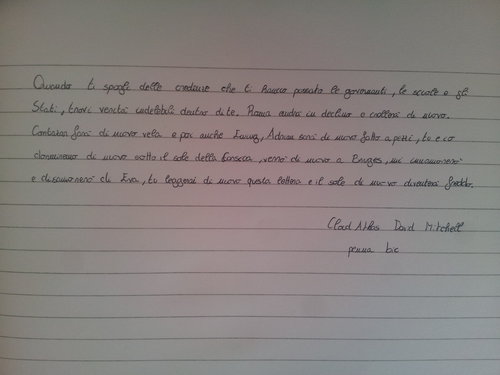 Quando ti spogli delle credenze che ti hanno passato le governanti, le scuole e gli
Stati, trovi verità indelebili dentro di te. Roma andrà in declino e crollerà di nuovo.
Cortazar farà di nuovo vela e poi anche Ewing, Adrian sarà di nuovo fatto a pezzi, tu e io
dormiremo di nuovo sotto il sole della Corsica, verrò di nuovo a Bruges, mi innamorerò
e disamorerò di Eva, tu leggerai di nuovo questa lettera e il sole di nuovo diventerà freddo.
Cloud Atlas David Mitchell
penna bic